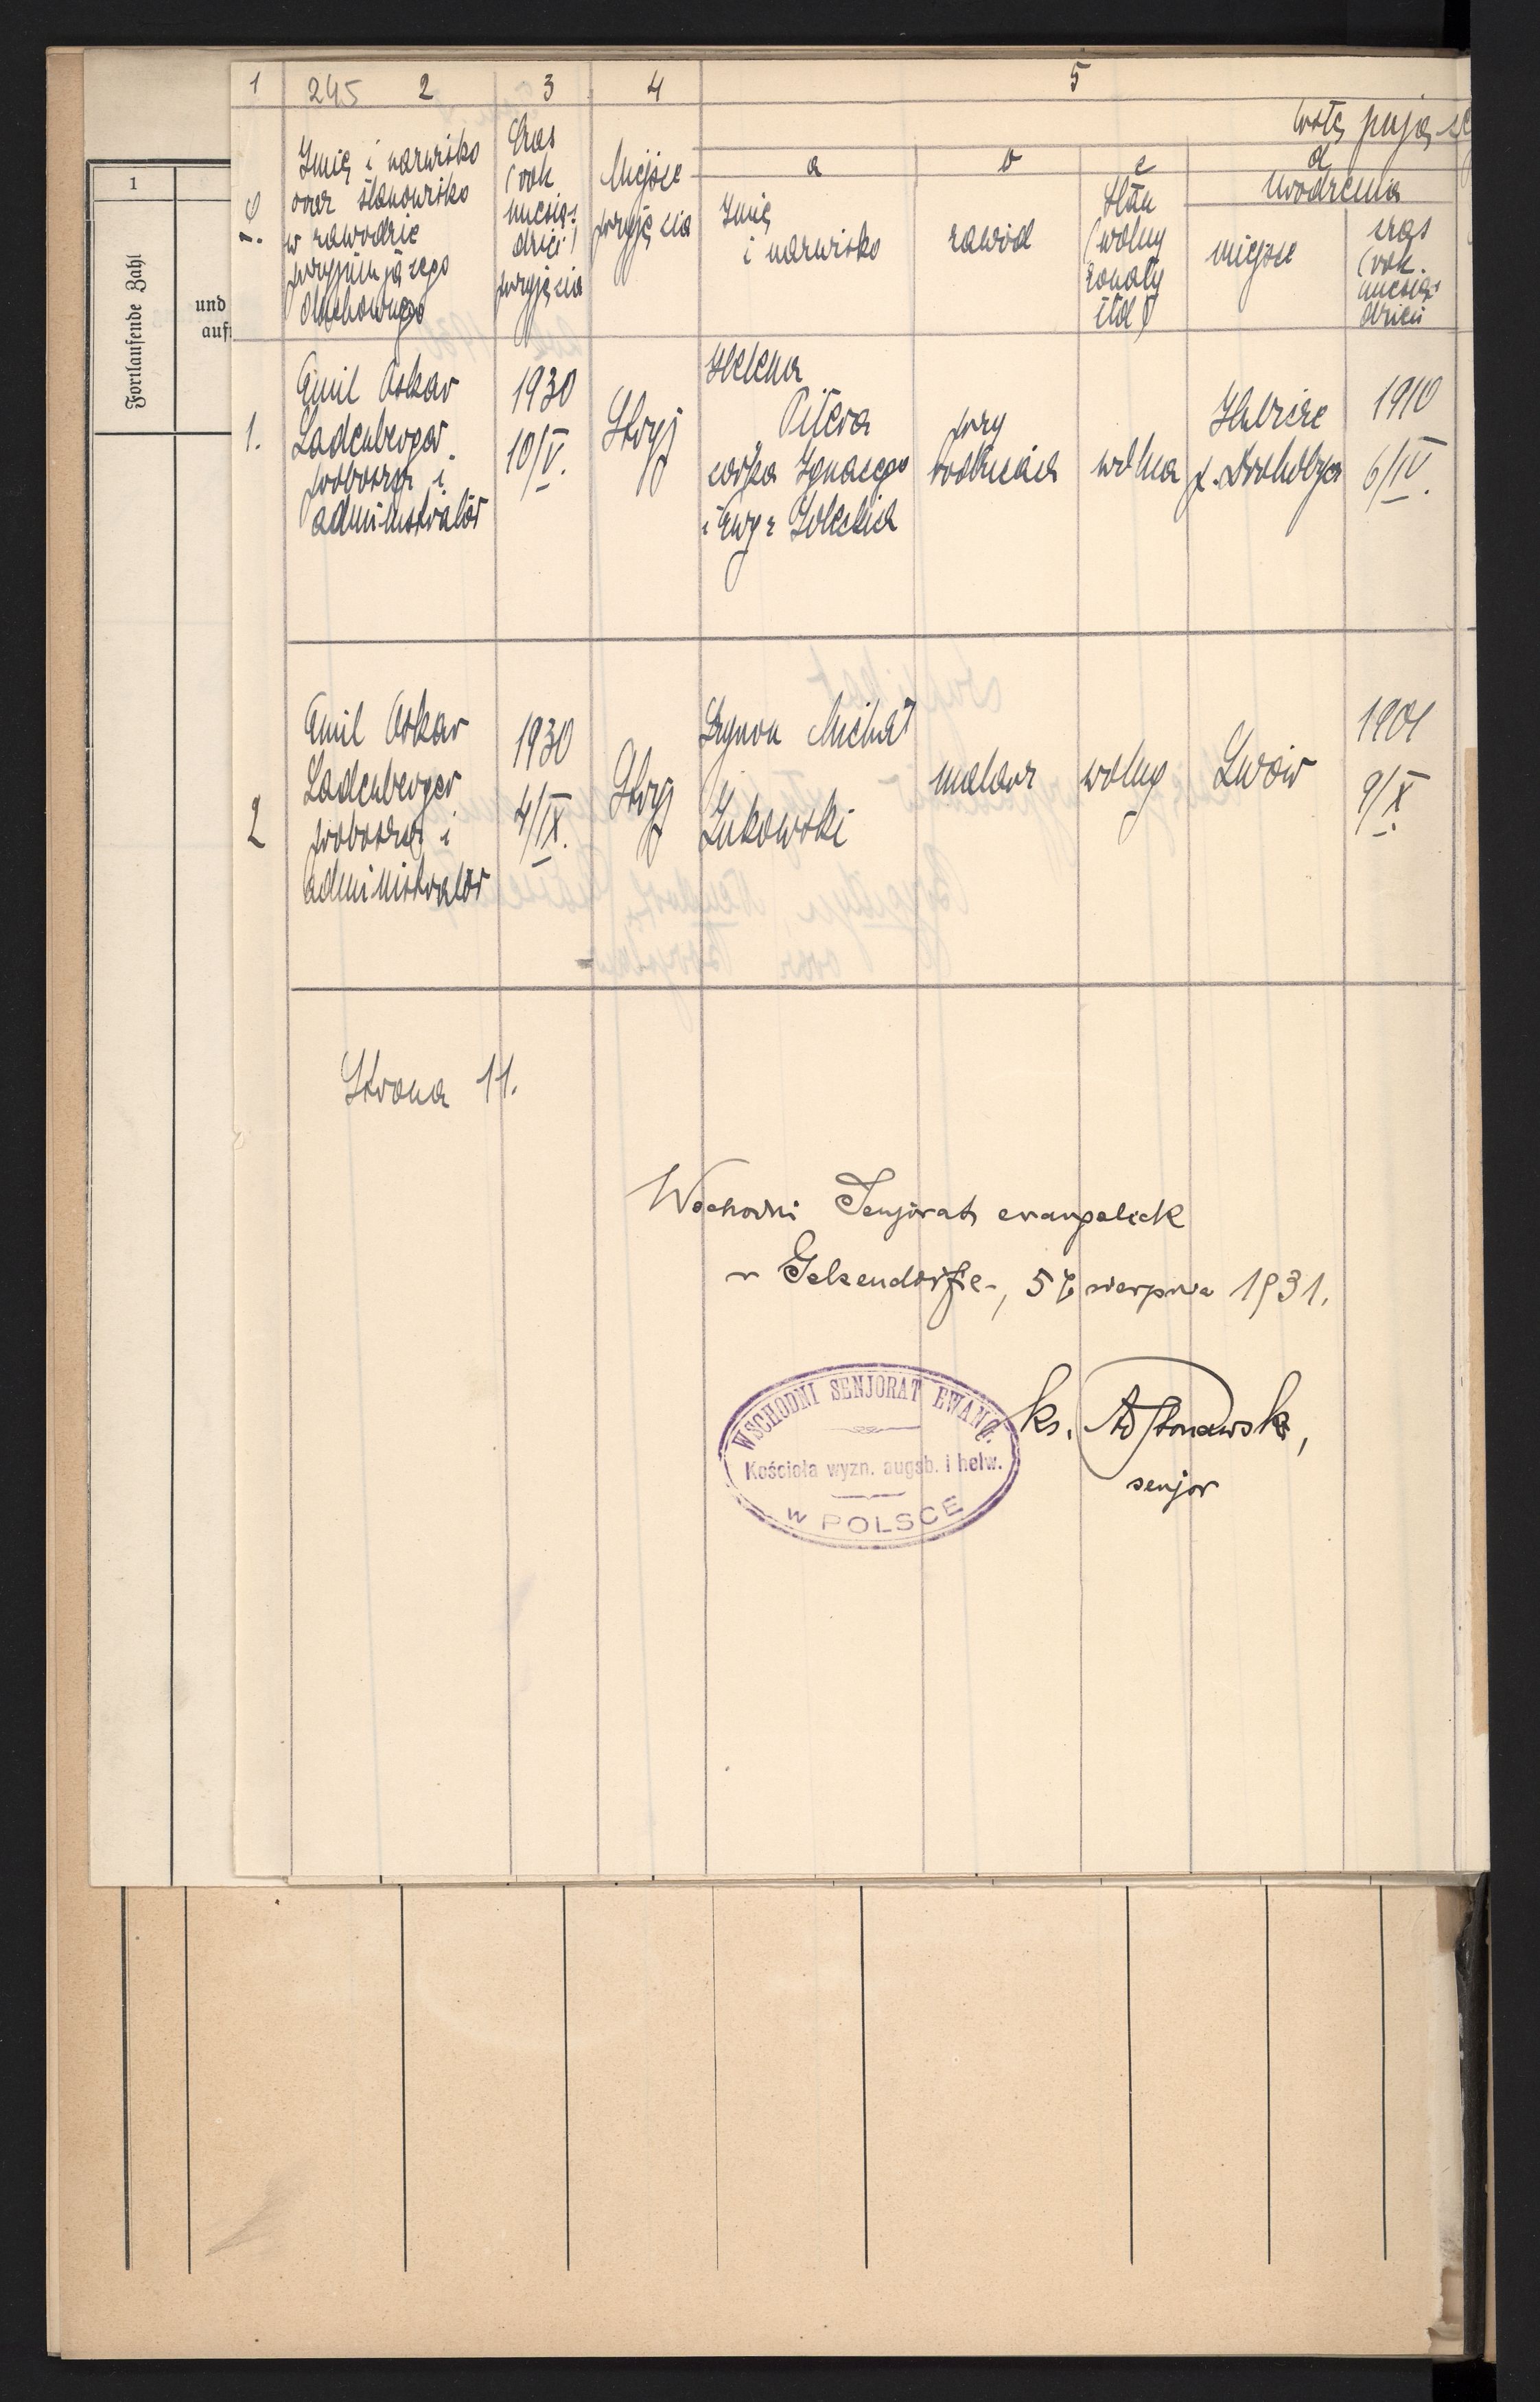 1 245 2 3 4 5
wstępują
1 a b c d
Fortlaufende Zahl
und
auf
Imię i nazwisko
oraz stanowisko
w zawodzie
przyjmującego
duchownego
Czas
(rok
miesiąc
dzień)
przyjęcia
Miejsce
przyjęcia
Imię
i nazwisko
zawód
stan
(wolny
żonaty
itd)
urodzenia
miejsce
czas
(rok.
miesiąc
dzień
1.
Emil Oskar
Ladenberger
proboszcz i
administrator
1930
10/V.
Stryj
Helena
Pitera
córka Ignacego
i Ewy z
przy
rodzicach
wolna
Hubicze
p. Drohobycz
1910
6/IV.
2
Emil Oskar
Ladenberger
proboszcz i
administrator
1930
4/IX.
Stryj
Szymon Michał
Żukowski
malarz
wolny
Lwów
1901
9/X.
Strona 11.
Wschodni Senjorat ewangelick
w Gelsendorfie, 5 sierpnia 1931.
WSCHODNI SENJORAT EWANG.
Kościoła wyzn. augsb. i helw.
w POLSCE
ks.
senjor